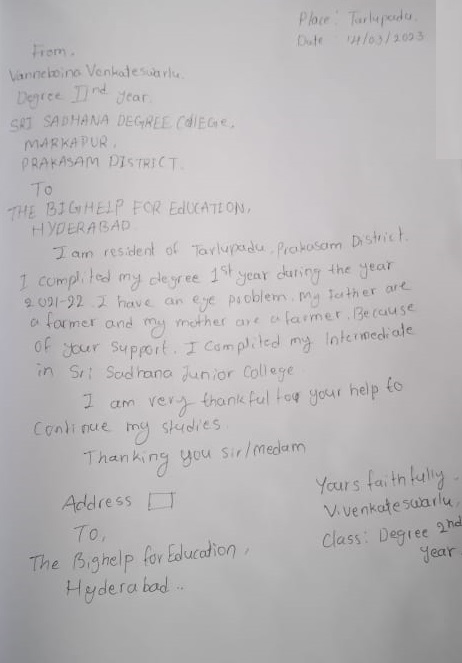 Place : Tarlupadu.
Date : 14/03/2023
From,
Vanneboina Venkateswarlu.
Degree IInd year.
SRI SADHANA DEGREE CollEGe,
MARKAPUR,
PRAKASAM DISTRICT.
To
THE BIGHELP FOR EdUCATION,
HYDERABAD
I am resident of Tarlupadu, Prakasam District.
I complited my degree 1st year during the year
2021-22. I have an eye problem. My father are
a farmer and my mother are a farmer. Because
of your support. I Complited my Intermediate
in Sri Sadhana Junior College
I am very thankful for your help to
Continue my studies.
Thanking you sir/medam
Yours faithfully.
V.venkateswarlu.
Class: Degree 2nd
year.
Address
To,
The Bighelp for Education,
Hyderabad..